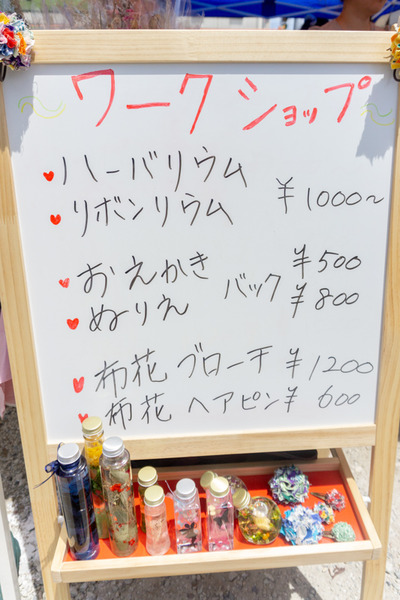 ワークショップ
ハーバリウム
リボンリウム ¥1000~
おえかき バック ¥500
ぬりえ ¥800
布花 ブローチ ¥1200
布花 ヘアピン ¥600